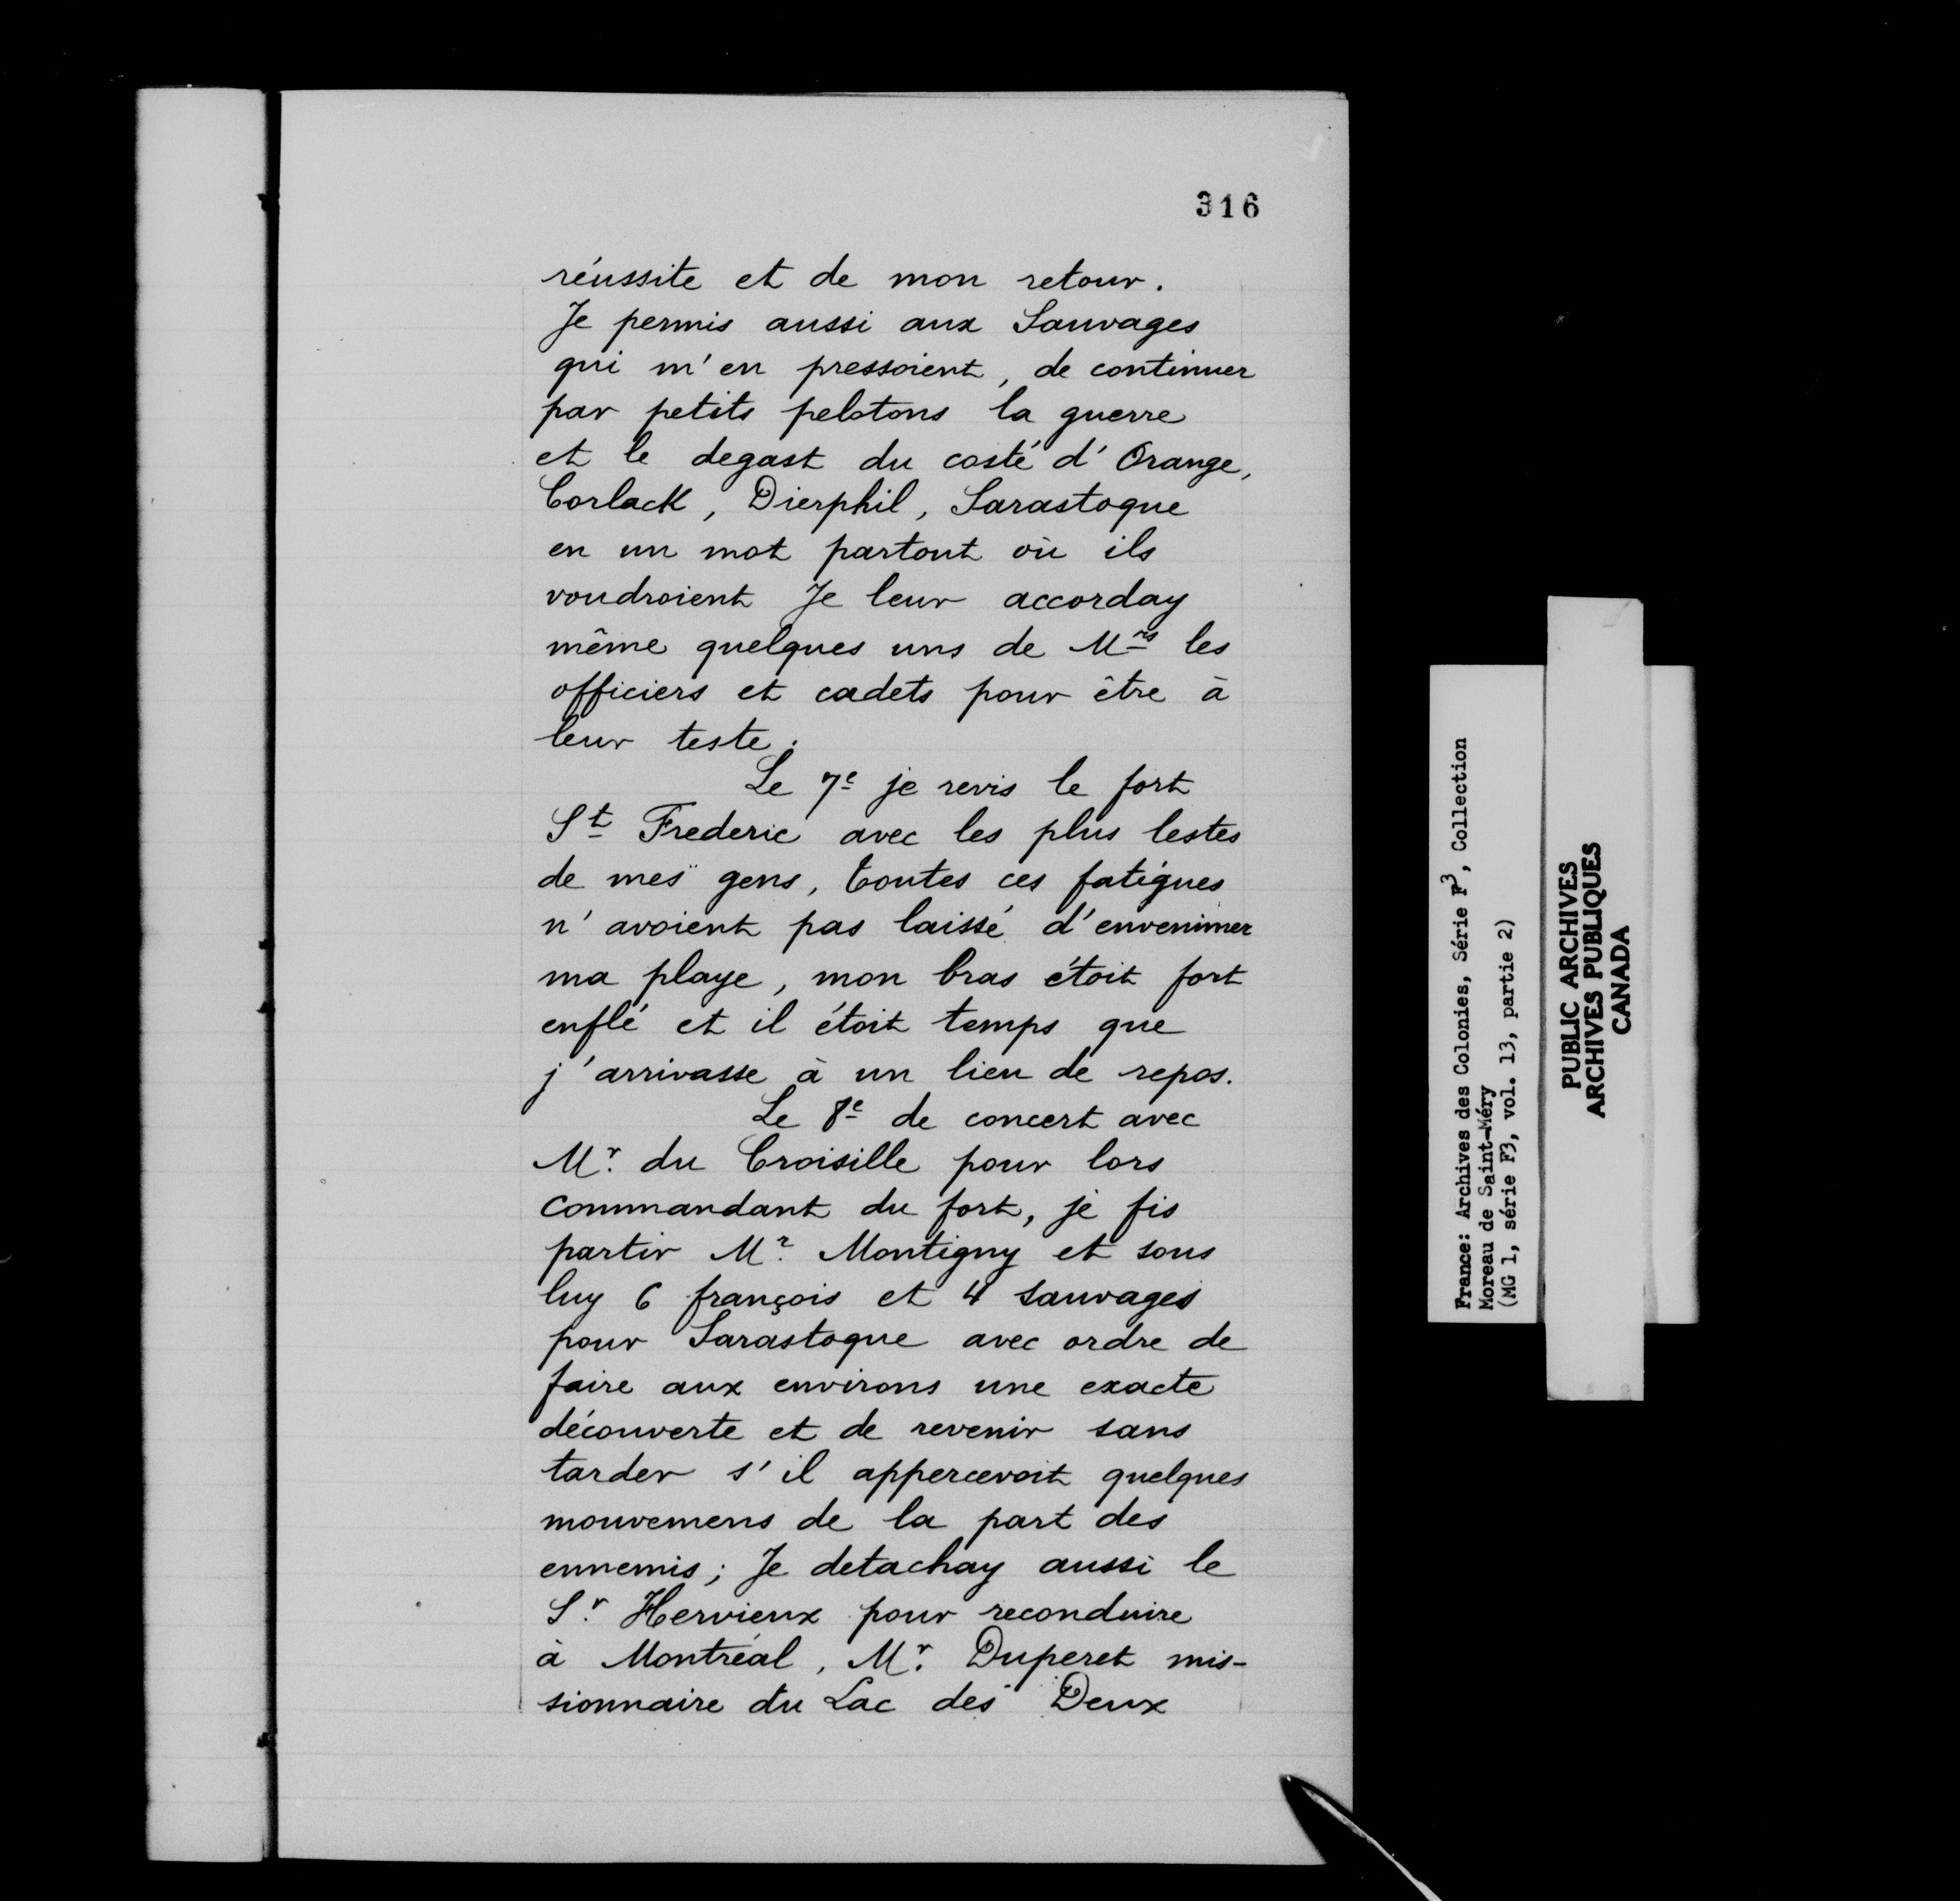 316
réussite et de mon retour.
Je permis aussi aux Sauvages
qui m'en pressoient, de continuer
par petits pelotons la guerre
et le degast du costé d'Orange,
Corlack, Dierphil, Sarastogue
en un mot partout où ils
voudroient Je leur accorday
même quelques uns de Mrs les
officiers et cadets pour être à
leur teste.
Le 7e je revis le fort
St Frederic avec les plus lestes
de mes gens, toutes ces fatigues
n'avoient pas laissé d'envenimer
ma playe, mon bras étoit fort
enflé et il étoit temps que
j'arrivasse à un lieu de repos.
Le 8e de concert avec
Mr. du Croisille pour lors
commandant du fort, je fis
partir Mr. Montigny et sous
luy 6 françois et 4 sauvages
pour Sarastogue avec ordre de
faire aux environs une exacte
découverte et de revenir sans
tarder s'il appercevoit quelques
mouvemens de la part des
ennemis; Je detachay aussi le
Sr. Hervieux pour reconduire
à Montréal, Mr. Duperet mis-
sionnaire du Lac des Deux
France: Archives des Colonies, Série F3, Collection
Moreau de Saint-Méry
(MG 1, série F3, vol. 13, partie 2)
PUBLIC ARCHIVES
ARCHIVES PUBLIQUES
CANADA